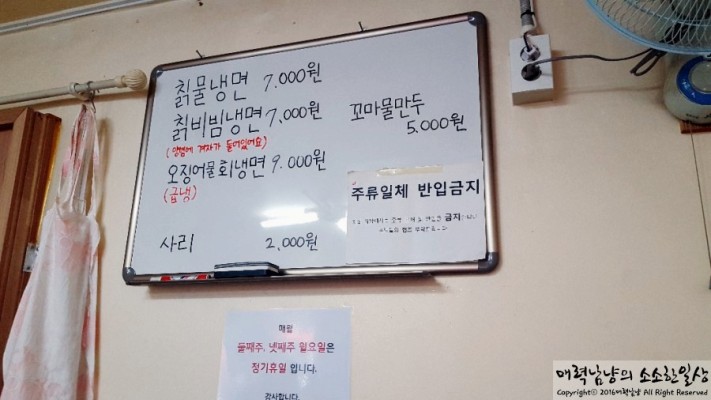 칡물냉면 7.000원
칡비빔냉면 7,000원
(양념에 겨자가 들어있어요)
오징어물회냉면 9.000원
(급냉)
사리 2,000원
꼬마물만두
5.000원
주류일체 반입금지
금지
매월
둘째주, 넷째주 일요일은
정기휴일 입니다.
감사합니다.
매력남냥의 소소한일상
Copyright© 2016매력남냥 All Rights Reserved